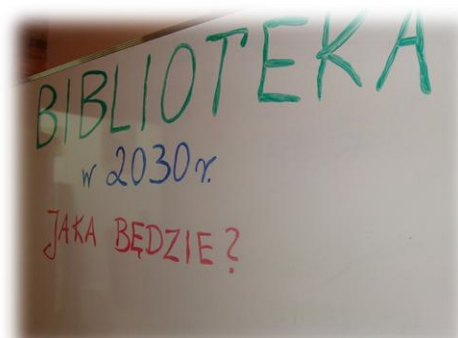 BIBLIOTEKA
w 2030r.
JAKA BĘDZIE?